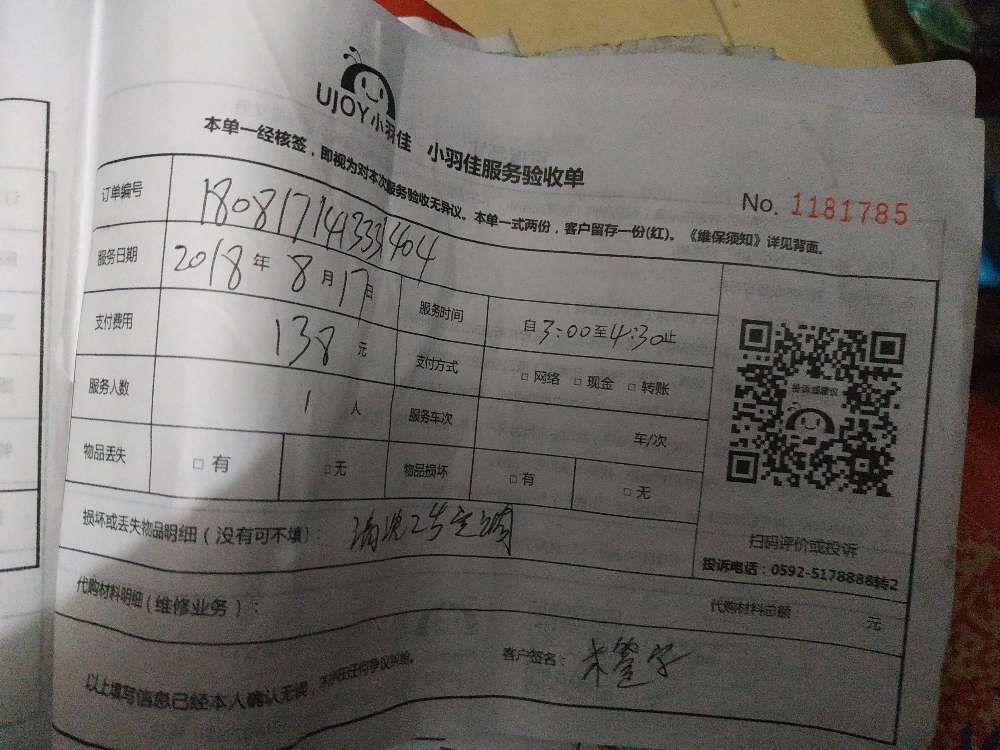 UJOY小羽佳 小羽佳服务验收单
本单一经核签，即视为对本次服务验收无异议。本单一式两份，客户留存一份(红)。《维保须知》详见背面。
No. 1181785
订单编号 180817141331404
服务日期 2018年 8月17日 服务时间 自3:00至4:30止
支付费用 138 元 支付方式 □ 网络 □ 现金 □ 转账
服务人数 1 人 服务车次 车/次
物品丢失 □ 有 □ 无 物品损坏 □ 有 □ 无
投诉或建议
扫码评价或投诉
投诉电话：0592-5178888转2
损坏或丢失物品明细（没有可不填）：
代购材料明细（维修业务）： 代购材料总额 元
以上填写信息已经本人确认无误，不存在任何争议纠纷。 客户签名：